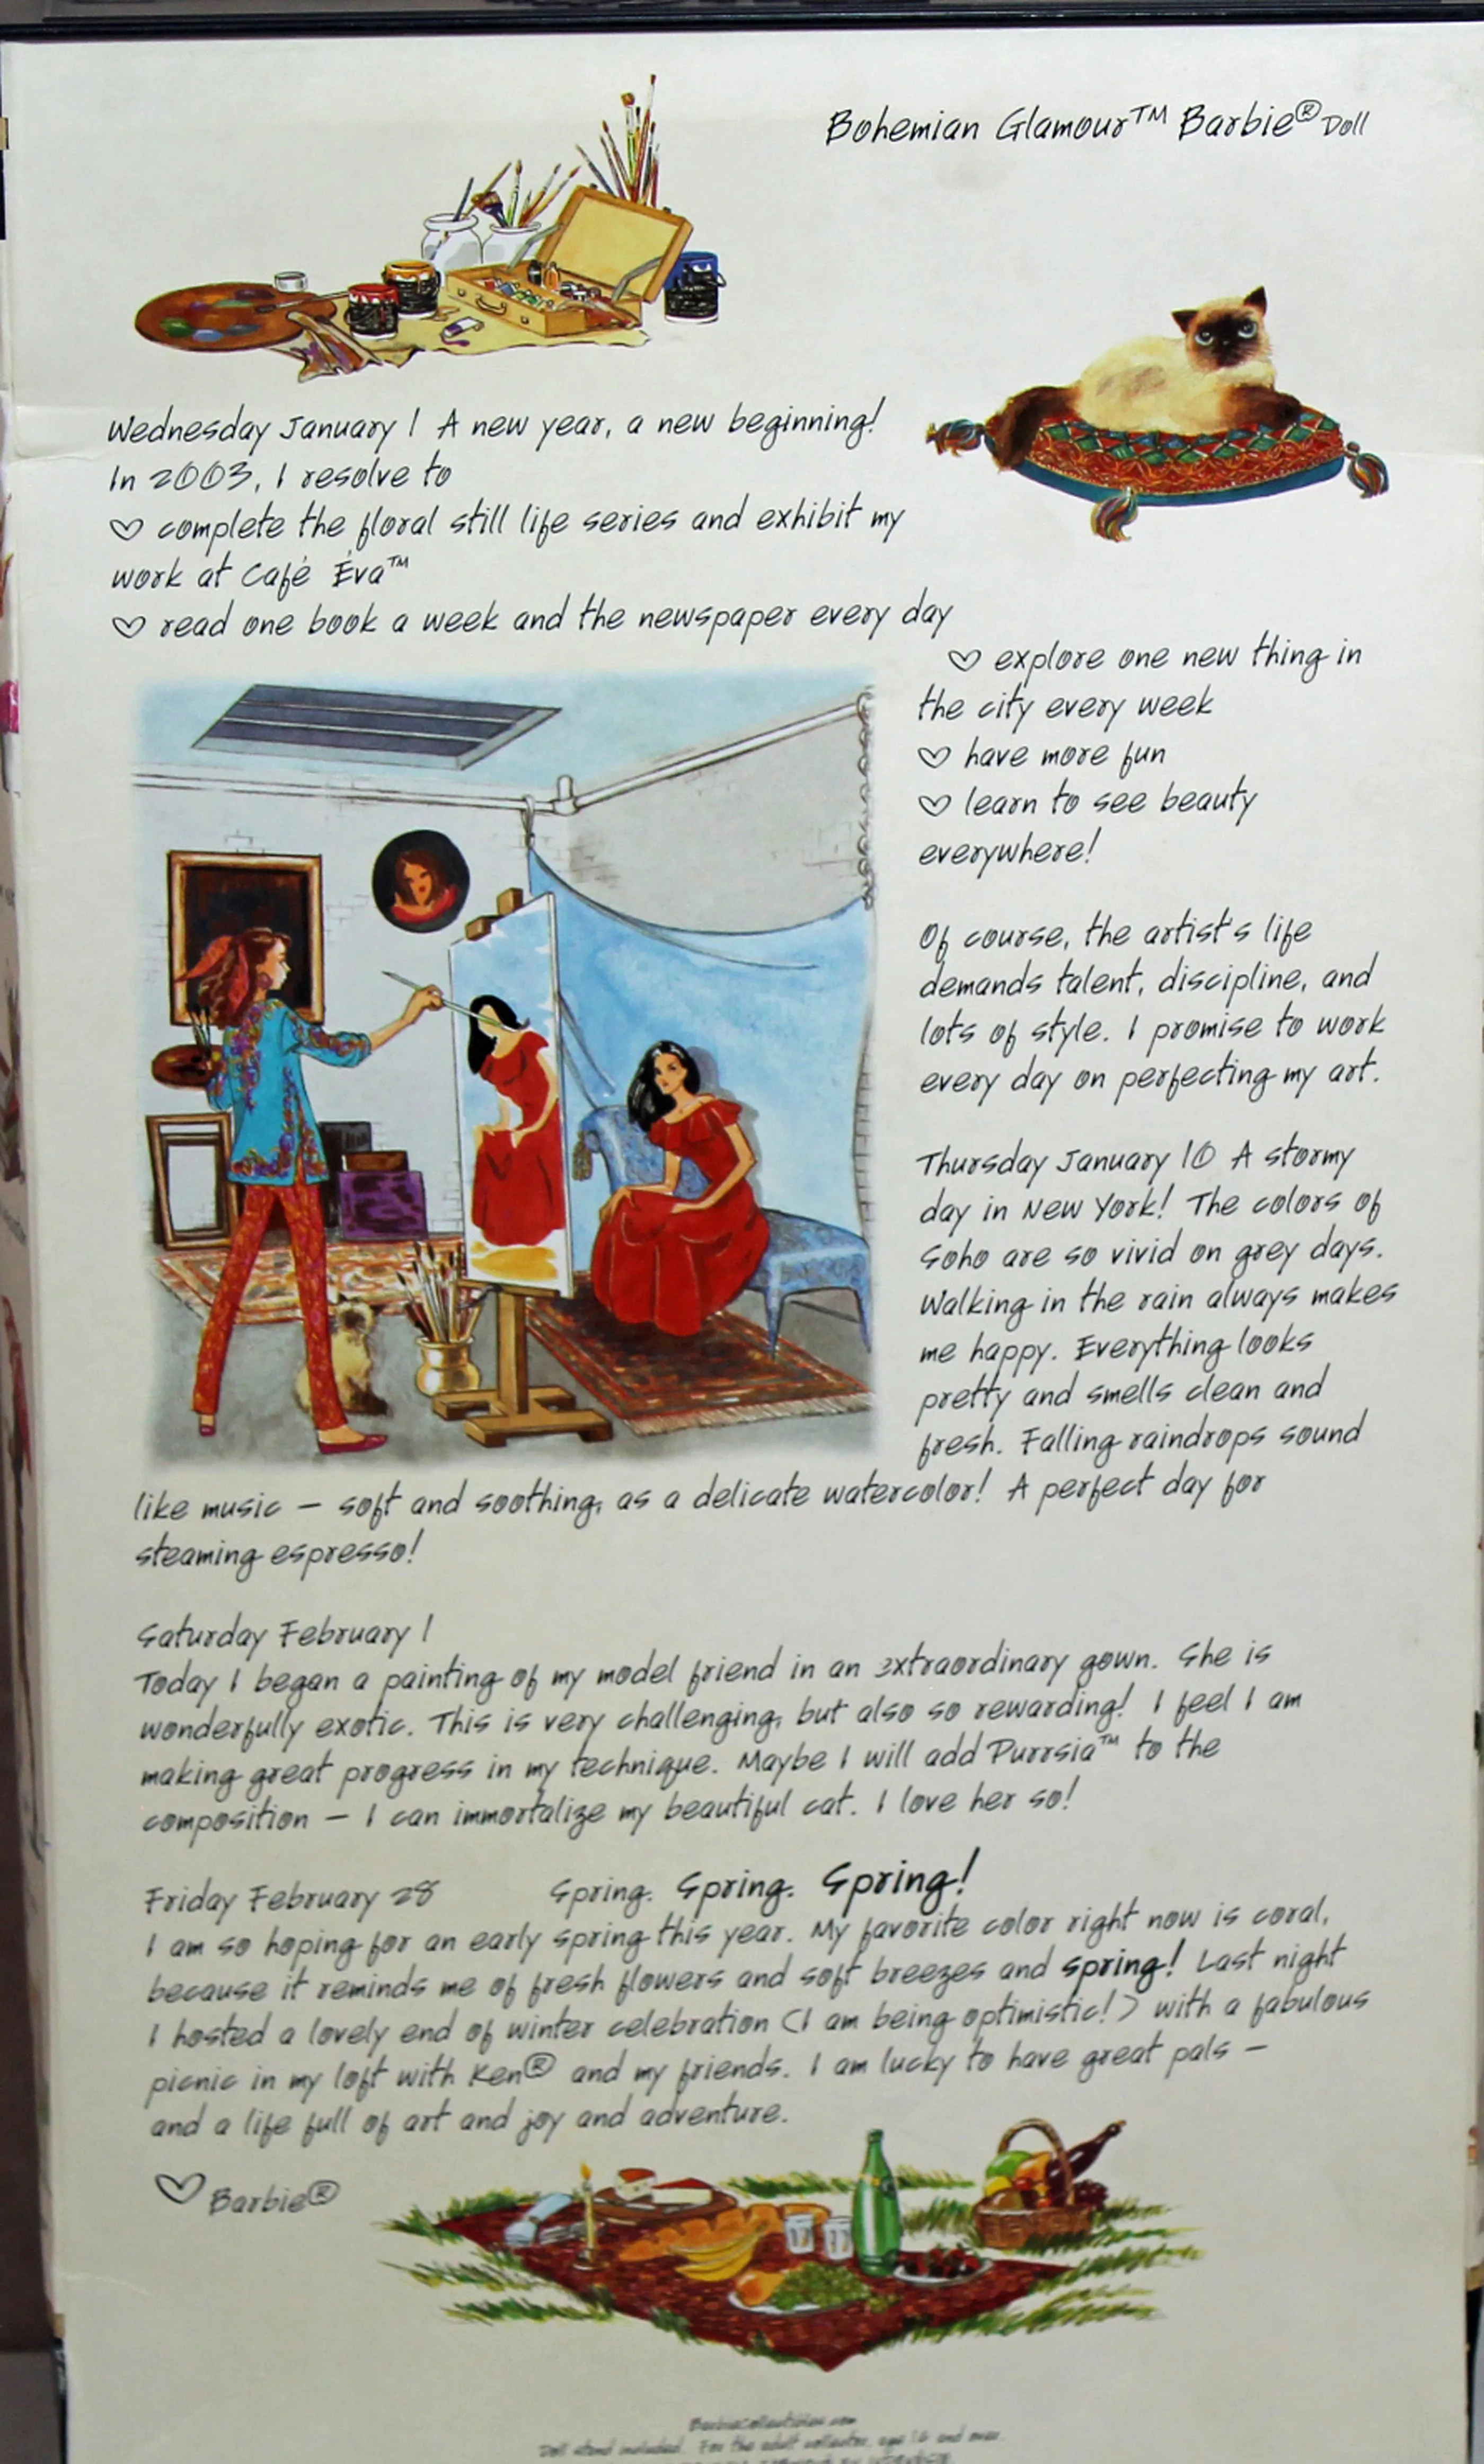 Bohemian Glamour™ Barbie® Doll
Wednesday January 1 A new year, a new beginning!
In 2003, I resolve to
♡ complete the floral still life series and exhibit my
work at Café Éva™
♡ read one book a week and the newspaper every day
♡ explore one new thing in
the city every week
♡ have more fun
♡ learn to see beauty
everywhere!
Of course, the artist's life
demands talent, discipline, and
lots of style. I promise to work
every day on perfecting my art.
Thursday January 10 A stormy
day in New York! The colors of
Soho are so vivid on grey days.
Walking in the rain always makes
me happy. Everything looks
pretty and smells clean and
fresh. Falling raindrops sound
like music – soft and soothing, as a delicate watercolor! A perfect day for
steaming espresso!
Saturday February 1
Today I began a painting of my model friend in an extraordinary gown. She is
wonderfully exotic. This is very challenging, but also so rewarding! I feel I am
making great progress in my technique. Maybe I will add Purrsia™ to the
composition – I can immortalize my beautiful cat. I love her so!
Friday February 28 Spring. Spring. Spring!
I am so hoping for an early spring this year. My favorite color right now is coral,
because it reminds me of fresh flowers and soft breezes and spring! Last night
I hosted a lovely end of winter celebration (I am being optimistic!) with a fabulous
picnic in my loft with Ken® and my friends. I am lucky to have great pals –
and a life full of art and joy and adventure.
♡ Barbie®
BarbieCollectibles.com
Doll stand included. For the adult collector, age 16 and over.